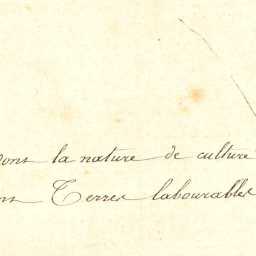 dont la nature de culture
Terres labourables